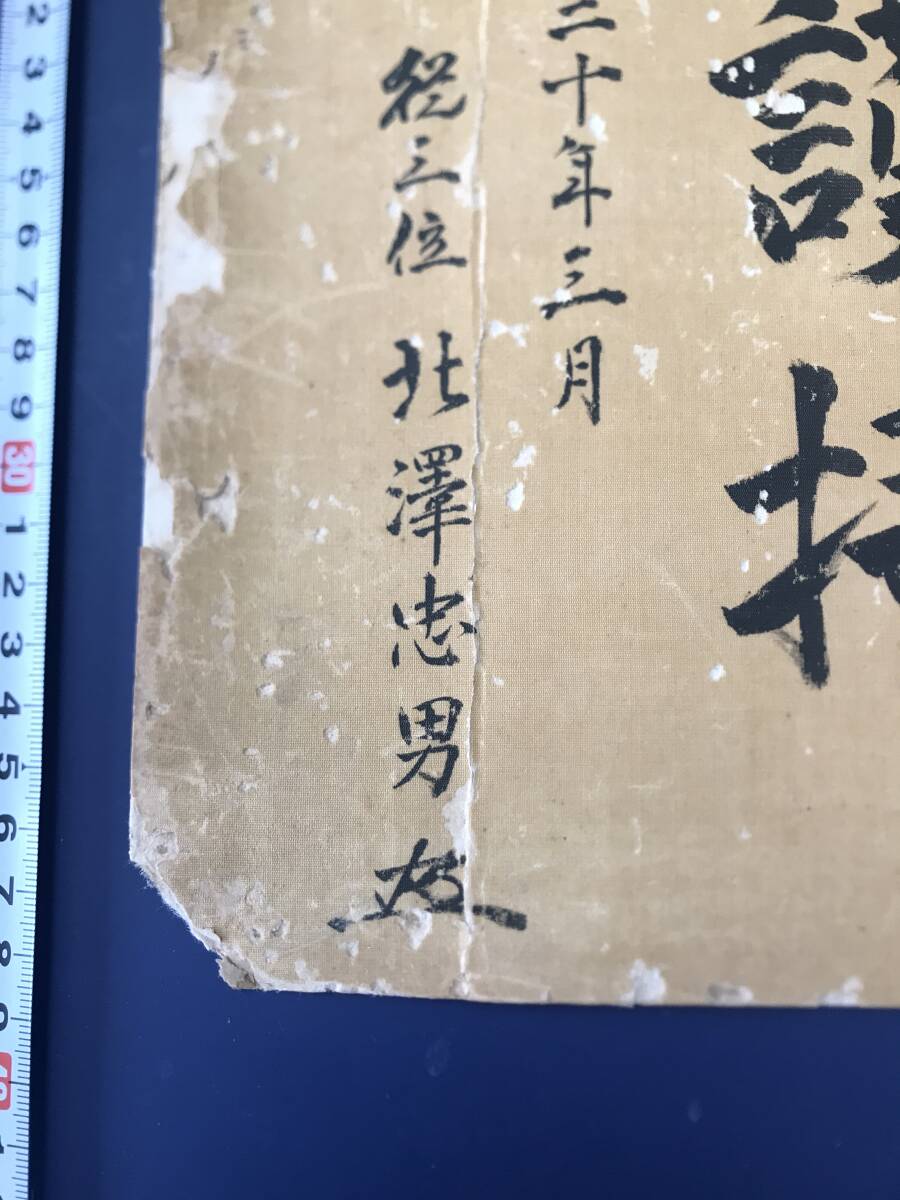 二十年三月
從三位 北澤忠男
2 3 4 5 6 7 8 9 30 1 2 3 4 5 6 7 8 9 40 1